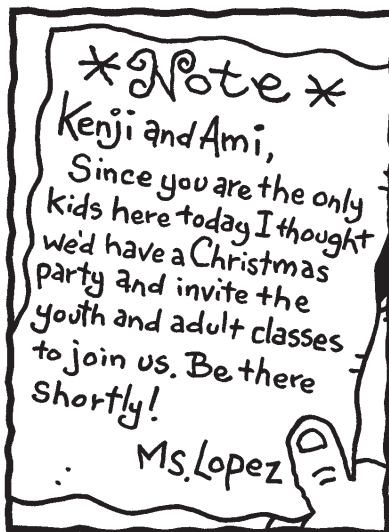 *Note*
Kenji and Ami,
Since you are the only
kids here today I thought
we'd have a Christmas
party and invite the
youth and adult classes
to join us. Be there
shortly!
Ms. Lopez